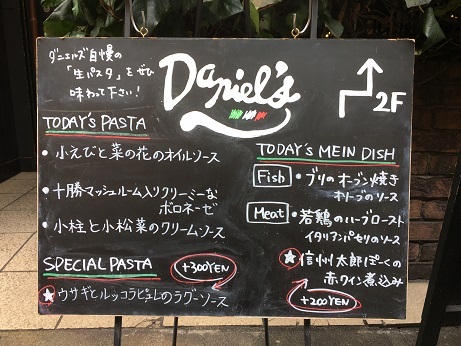 ダニエルズ自慢の
「生パスタ」をぜひ
味わって下さい!
Daniel's
2F
TODAY'S PASTA
・小えびと菜の花のオイルソース
・十勝マッシュルーム入りクリーミーな
ボロネーゼ
・小柱と小松菜のクリームソース
SPECIAL PASTA
+300YEN
★ウサギとルッコラピュレのラグーソース
TODAY'S MEIN DISH
Fish ・ブリのオーブン焼き
オリーブのソース
Meat ・若鶏のハーブロースト
イタリアンパセリのソース
★信州太郎ぽーくの
赤ワイン煮込み
+200YEN